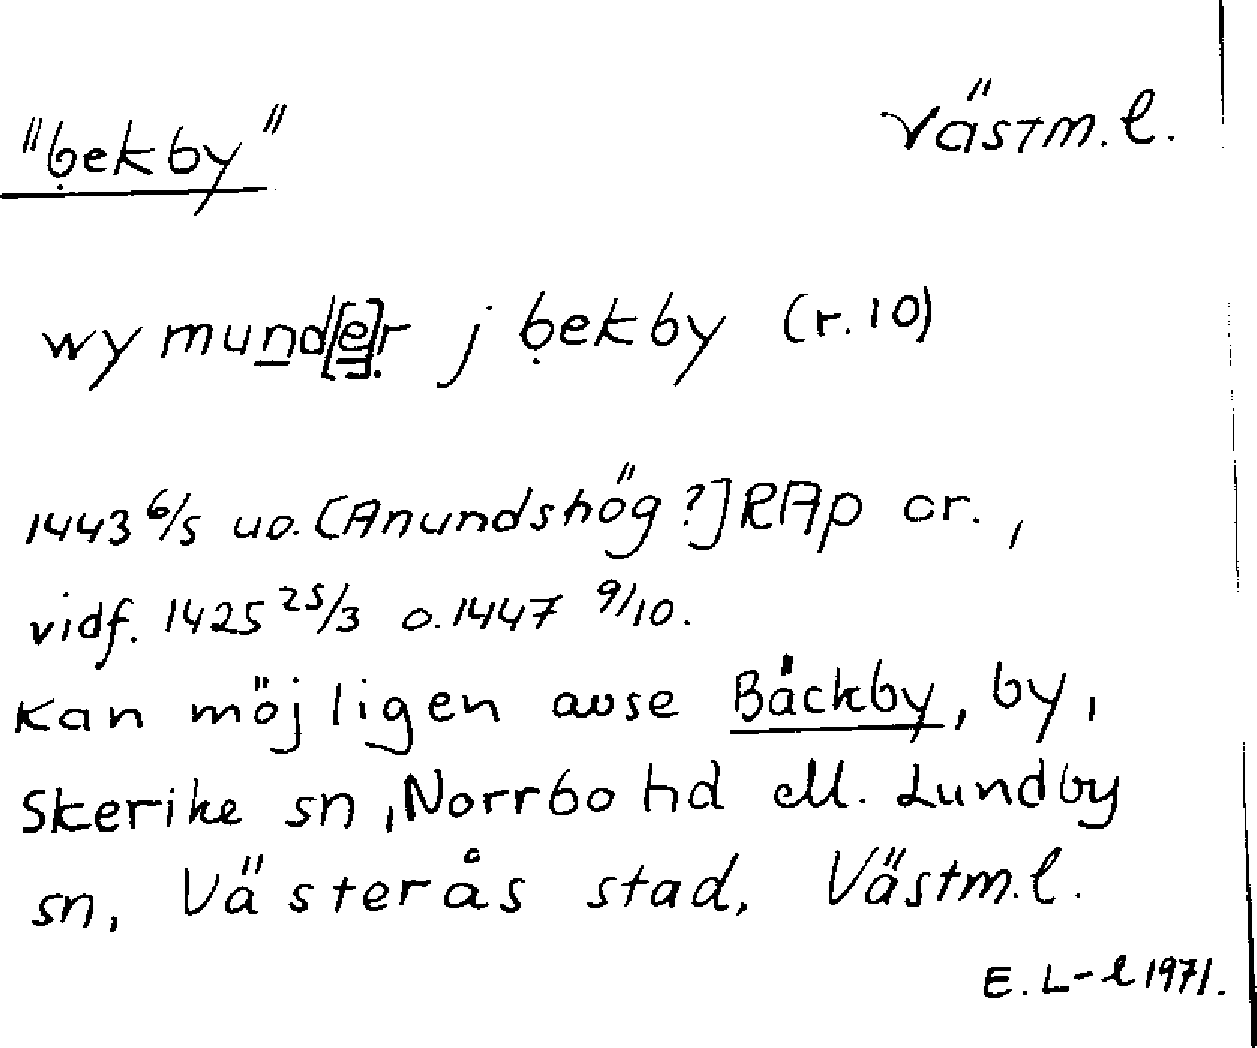 "ḅekby" Västm.l.
wymund[e]ṛ j ḅekby (r.10)
1443 6/5 uo. [Anundshög?] RAp or.,
vidf. 1425 25/3 o. 1447 9/10.
Kan möjligen avse Bäckby, by,
Skerike sn, Norrbo hd ell. Lundby
sn, Västerås stad, Västm.l.
E. L-l 1971.